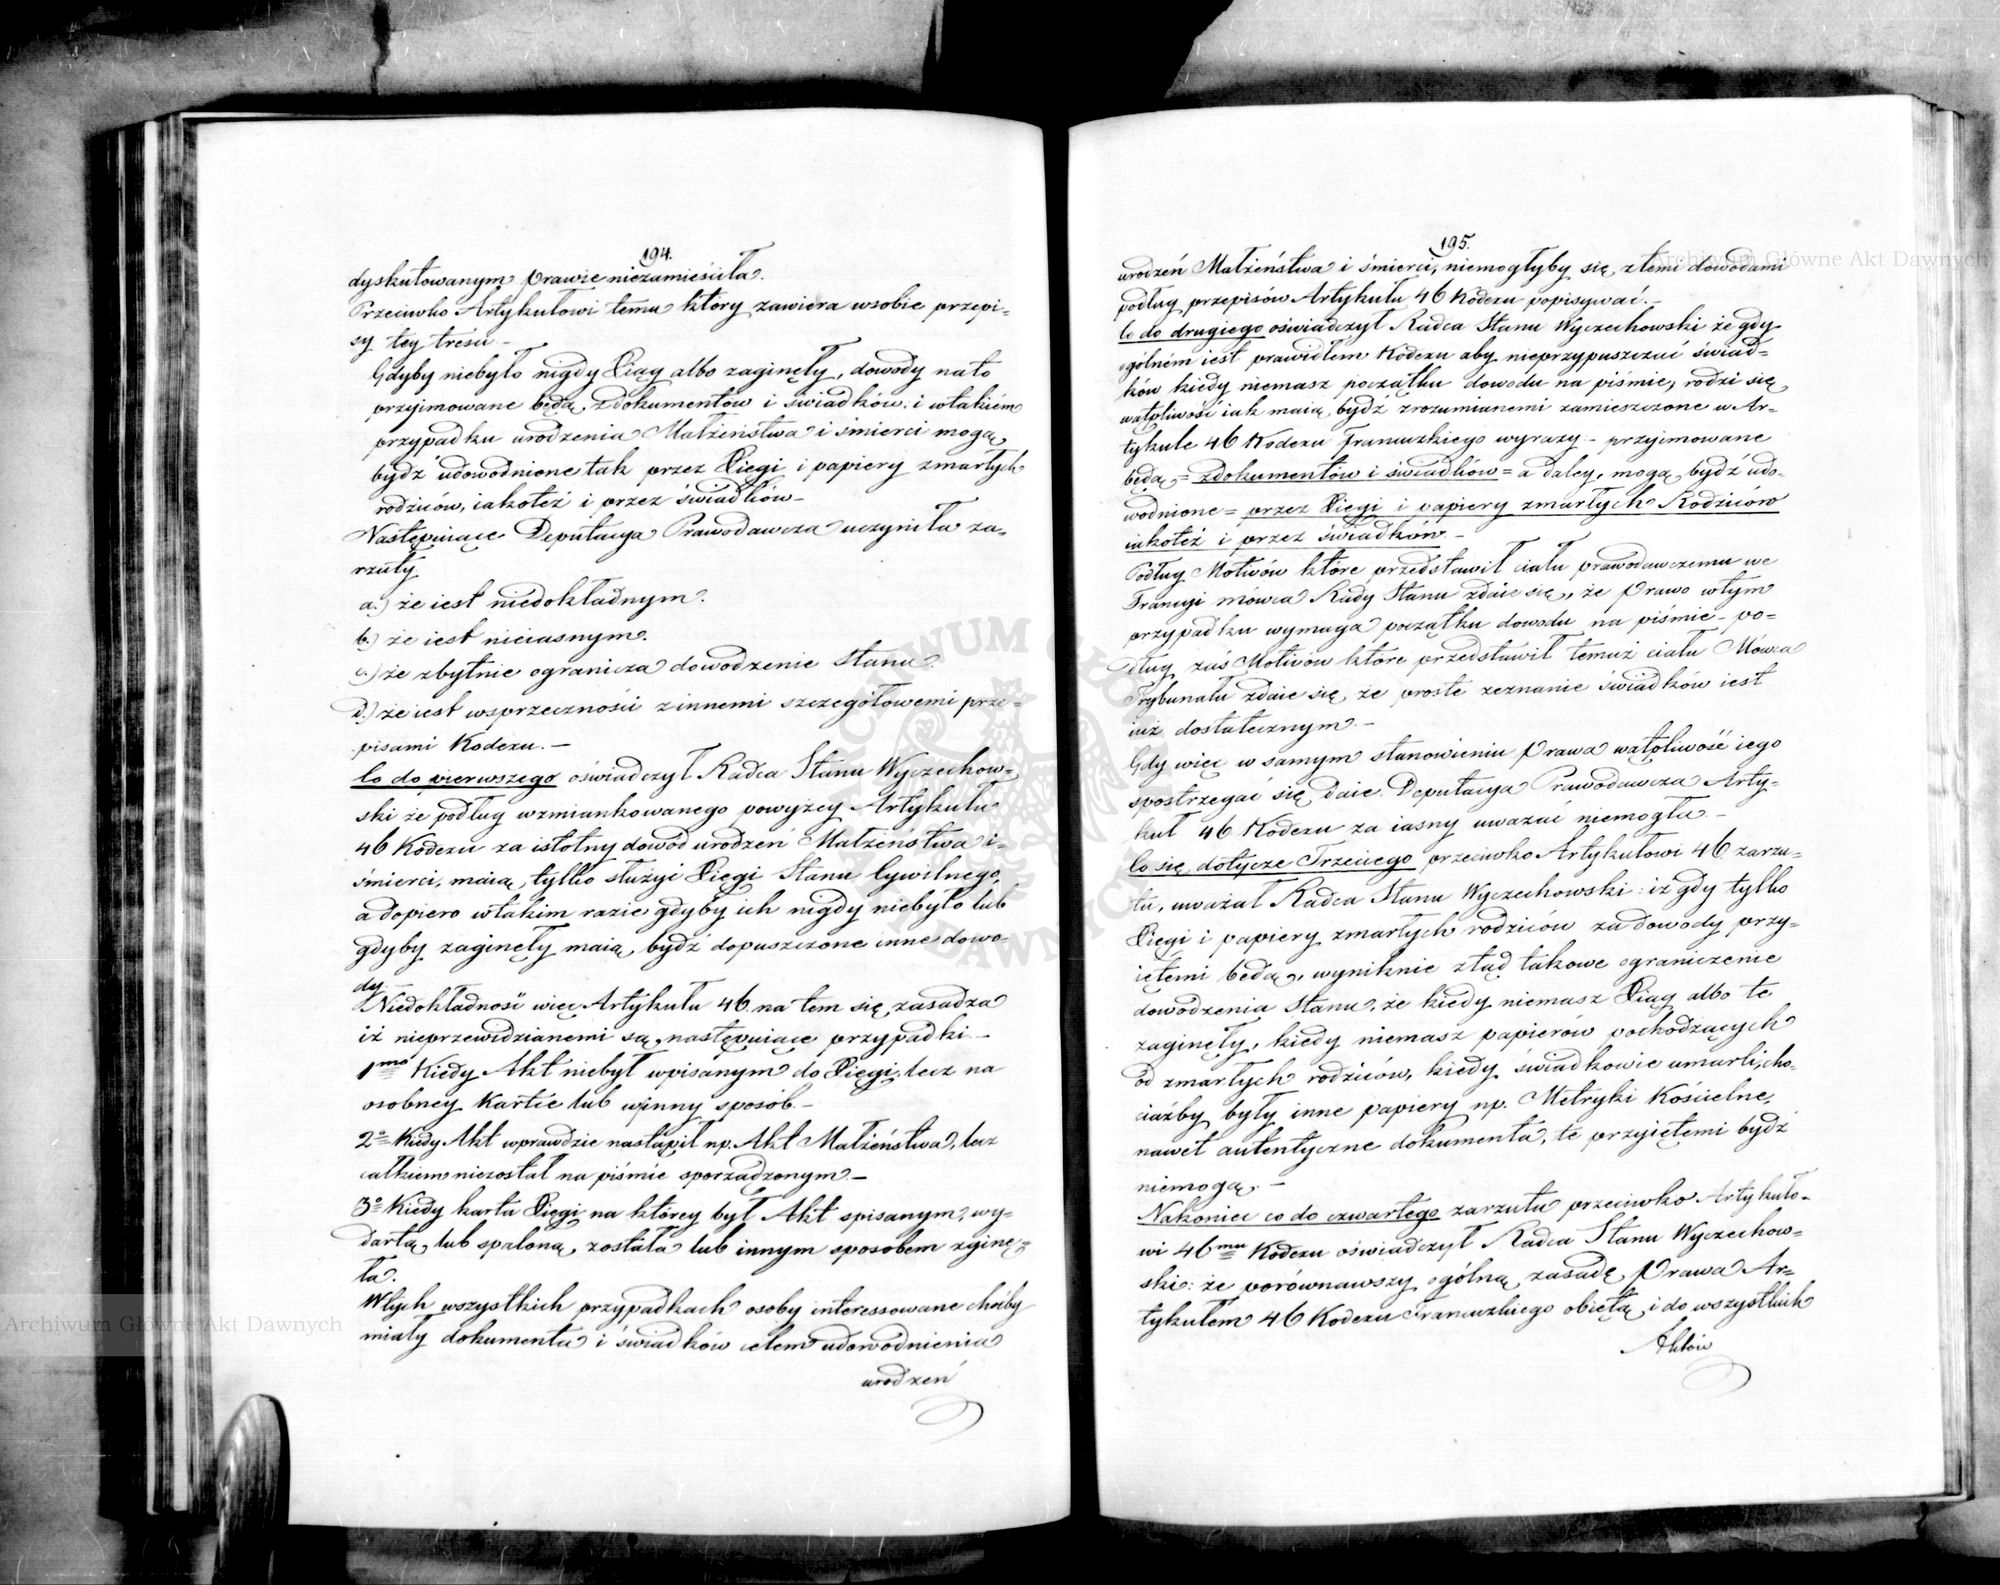 194.
dyskutowanym Prawie niezamieściła.
Przeciwko Artykułowi temu który zawiera wsobie przepi=
sy tey treści –
Gdyby niebyło nigdy Xiąg albo zaginęły, dowody na to
przyjmowane będą, z dokumentów i świadków; i wtakiém
przypadku urodzenia Małżeństwa i śmierci mogą
bydź udowodnione tak przez Xięgi i papiery zmarłych
rodziców, iakoteż i przez świadków –
Następuiące Deputacya Prawodawcza uczyniła za=
rzuty
a.) że iest niedokładnym.
b.) że iest nieiasnym.
c.) że zbytnie ogranicza dowodzenie stanu.
d.) że iest wsprzeczności zinnemi szczegółowemi prze=
pisami Kodexu. –
Co do pierwszego oświadczył Radca Stanu Wyczechow=
ski że podług wzmiankowanego powyżey Artykułu
46 Kodexu za istotny dowód urodzeń Małżeństwa i
śmierci, maią tylko służyć Xięgi Stanu Cywilnego,
a dopiero wtakim razie gdyby ich nigdy niebyło lub
gdyby zaginęły maią bydź dopuszczone inne dowo=
dy.
Niedokładność więc Artykułu 46. na tem się zasadza
iż nieprzewidzianemi są następuiące przypadki. –
1mo Kiedy Akt niebył wpisanym do Xięgi, lecz na
osobney Karcie lub winny sposób. –
2o Kiedy Akt wprawdzie nastąpił np. Akt Małżeństwa, lecz
całkiem niezostał na piśmie sporządzonym. –
3o Kiedy karta Xięgi na którey był Akt spisanym, wy=
dartą, lub spaloną, została lub innym sposobem zginę=
ła.
Wtych wszystkich przypadkach osoby interessowane choćby
miały dokumenta i świadków celem udowodnienia
urodzeń
195.
urodzeń Małżeństwa i śmierci, niemogłyby się ztemi dowodami
podług przepisów Artykułu 46 Kodexu popisywać. –
Co do drugiego oświadczył Radca Stanu Wyczechowski że gdy
ogólném iest prawidłem Kodexu aby nieprzypuszczać świad=
ków kiedy niemasz początku dowodu na piśmie, rodzi się
wątpliwość iak maią bydź zrozumianemi zamieszczone w Ar=
tykule 46 Kodexu Francuzkiego wyrazy – przyjmowane
będą = zdokumentów i świadków = a daley, mogą bydź udo=
wodnione = przez Xięgi i papiery zmarłych Rodziców
iakoteż i przez świadków. –
Podług Motivów które przedstawił ciału prawodawczemu we
Francyi mówca Rady Stanu zdaie się, że Prawo wtym
przypadku wymaga początku dowodu na piśmie – po=
dług zaś Motivów które przedstawił temuż ciału Mówca
Trybunatu zdaie się, że proste zeznanie świadków iest
iuż dostatecznym. –
Gdy więc w samym stanowieniu Prawa wątpliwość iego
spostrzegać się daie Deputacya Prawodawcza Arty=
kuł 46 Kodexu za iasny uważać niemogła –
Co się dotycze Trzeciego przeciwko Artykułowi 46 zarzu=
tu, uważał Radca Stanu Wyczechowski: iż gdy tylko
Xięgi i papiery zmarłych rodziców za dowody przy=
iętemi będą, wyniknie ztąd takowe ograniczenie
dowodzenia stanu, że kiedy niemasz Xiąg albo te
zaginęły, kiedy niemasz papierów pochodzących
od zmarłych rodziców, kiedy świadkowie umarli, cho=
ciażby były inne papiery np. Metryki Kościelne,
nawet autentyczne dokumenta, te przyiętemi bydź
niemogą. –
Nakoniec co do czwartego zarzutu przeciwko Artykuło=
wi 46mu Kodexu oświadczył Radca Stanu Wyczechow=
ski: że porównawszy ogólną zasadę Prawa Ar=
tykułem 46 Kodexu Francuzkiego obiętą i do wszystkich
Aktów
Archiwum Główne Akt Dawnych
Archiwum Główne Akt Dawnych